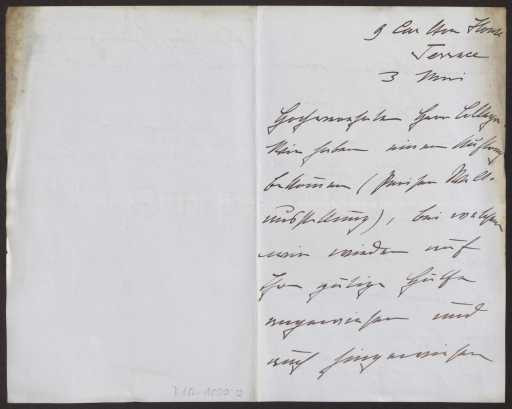 9 Carlton House
Terrace
3 Mai
Hochverehrter Herr College.
Wir haben einen Auftrag
bekommen (Pariser Welt-
ausstellung), bei welchem
wir wieder auf
Ihre gütige Hülfe
angewiesen und
auch hingewiesen